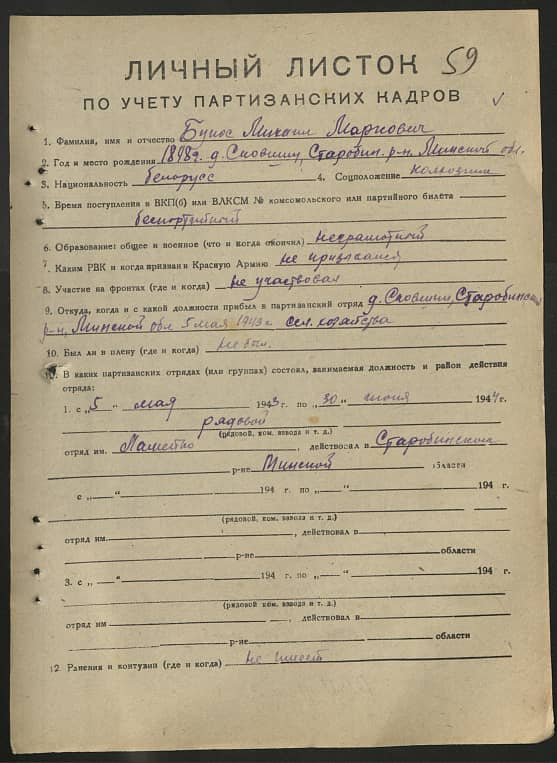 59
ЛИЧНЫЙ ЛИСТОК
ПО УЧЕТУ ПАРТИЗАНСКИХ КАДРОВ
1. Фамилия, имя и отчество Бунос Михаил Маркович
2. Год и место рождения 1898 г. д. Сковшин, Старобин. р-н, Минской обл.
3. Национальность белорусс 4. Соцположение колхозник
5. Время поступления в ВКП(б) или ВЛКСМ № комсомольского или партийного билета
беспартийный
6. Образование: общее и военное (что и когда окончил) неграмотный
7. Каким РВК и когда призван в Красную Армию не призывался
8. Участие на фронтах (где и когда) не участвовал
9. Откуда, когда и с какой должности прибыл в партизанский отряд д. Сковшин, Старобинск.
р-н, Минской обл 5 мая 1943 г. сел. хозяйства
10. Был ли в плену (где и когда) не был.
11. В каких партизанских отрядах (или группах) состоял, занимаемая должность и район действия
отряда:
1. с „5" мая 1943 г. по „30" июня 1944 г.
рядовой
(рядовой, ком. взвода и т. д.)
отряд им. , действовал в Старобинском
р-не Минской области
с „ " 194 г. по „ " 194 г.
(рядовой, ком. взвода и т. д.)
отряд им , действовал в
р-не области
3. с „ " 194 г. по „ " 194 г.
(рядовой, ком. взвода и т. д.)
отряд им , действовал в
р-не области
12. Ранения и контузии (где и когда) не имеет